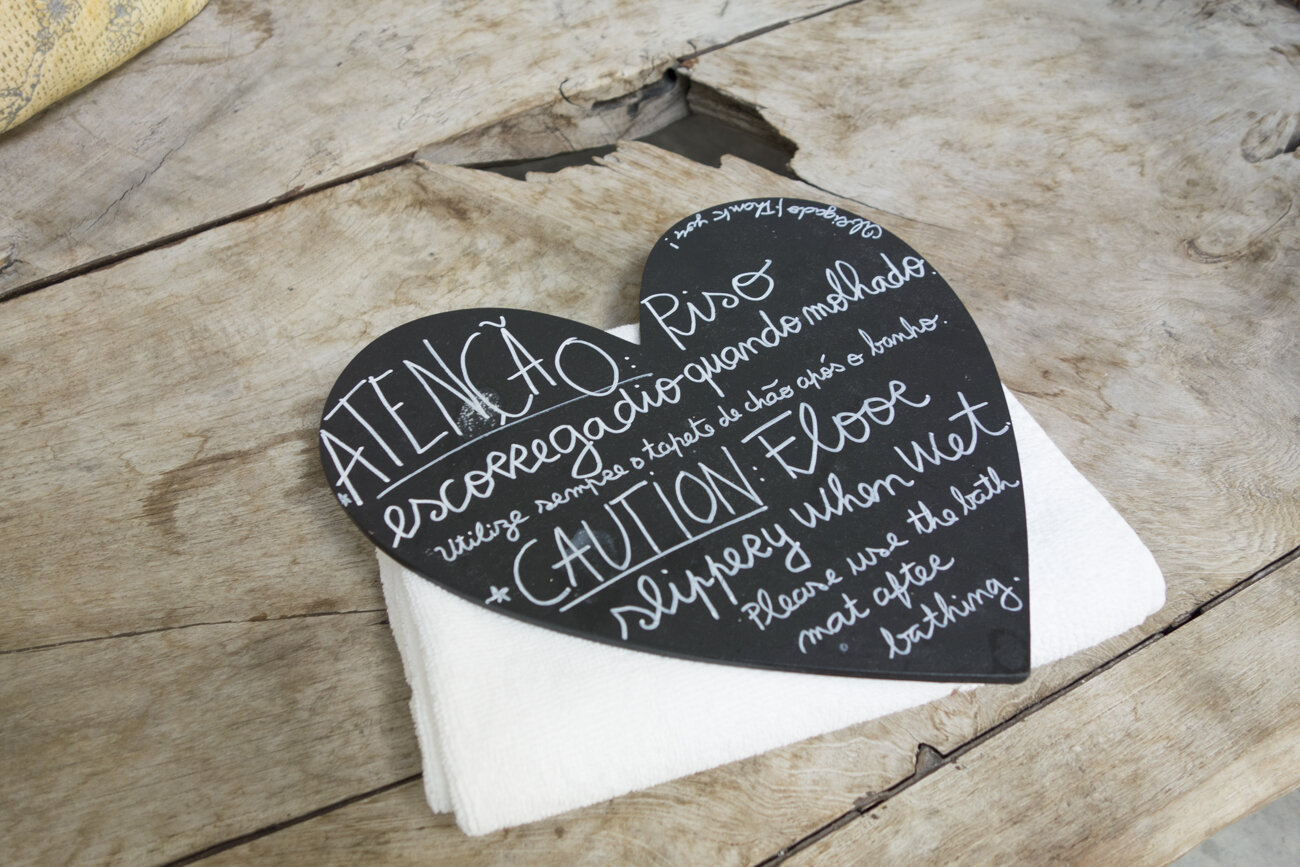 *ATENÇÃO: Piso
escorregadio quando molhado.
Utilize sempre o tapete de chão após o banho.
*CAUTION: Floor
slippery when wet.
Please use the bath
mat after
bathing.
Obrigado/Thank you!